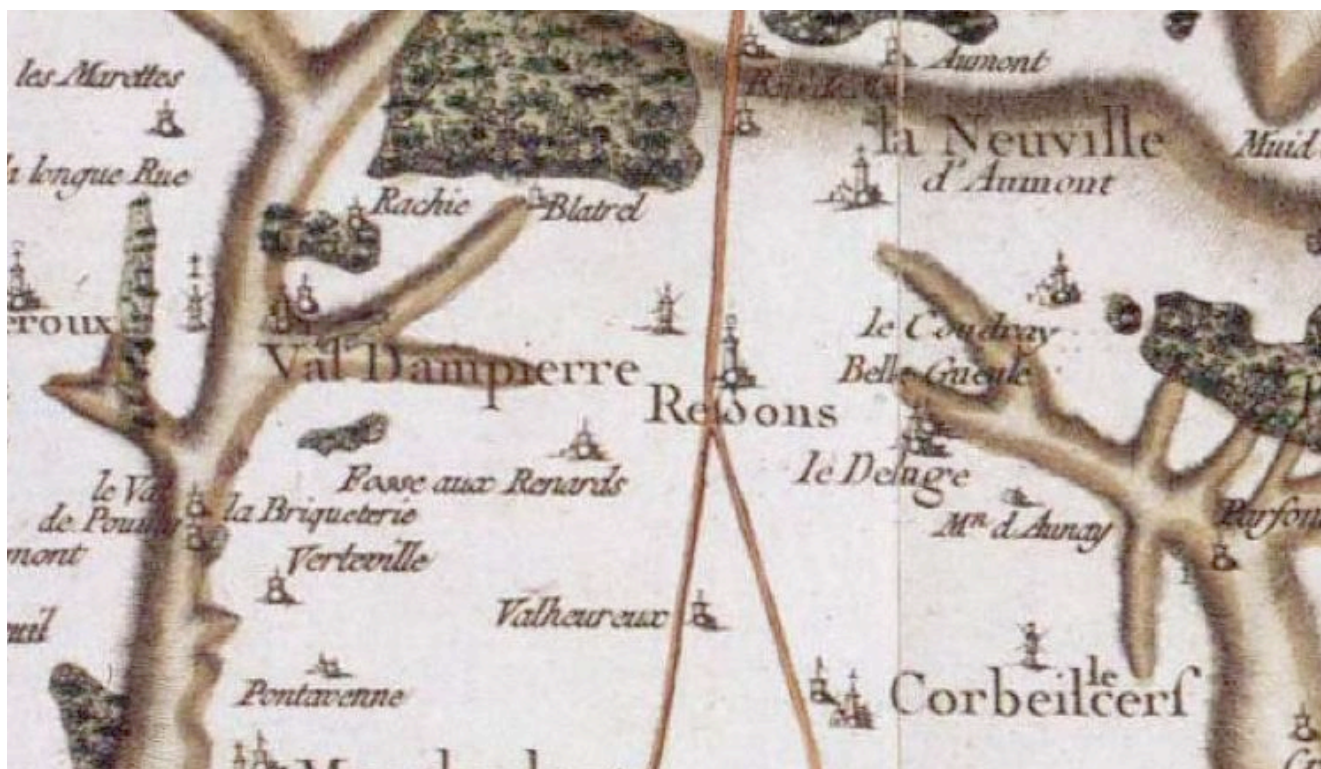 les Marottes
Aumont
la Neuville
d'Aumont
Muid
la longue Rue
Rachie
Blatrel
eroux
le Coudray
Val Dampierre
Belle Gueule
Ressons
Fosse aux Renards
le Deluge
le Val
de Pouilly
la Briqueterie
Mn d'Aunay
Parfon
mont
Verteville
Valheureux
Pontavenne
le
Corbeilcerf